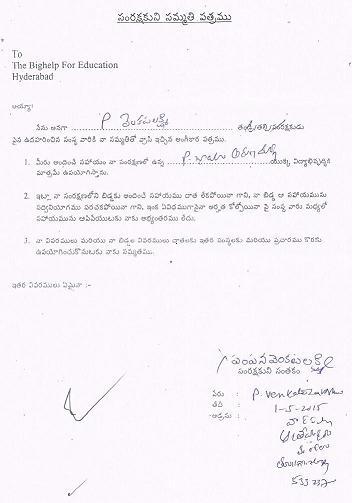 సంరక్షకుని సమ్మతి పత్రము
To
The Bighelp For Education
Hyderabad
అయ్యా!
నేను అనగా P. వెంకటలక్ష్మి తండ్రి/తల్లి/సంరక్షకుడు
పైన ఉదహరించిన సంస్థ వారికి నా సమ్మతితో వ్రాసి ఇచ్చిన అంగీకార పత్రము.
1. మీరు అందించే సహాయం నా సంరక్షణలో ఉన్న P. యొక్క విద్యాభివృద్ధికి
మాత్రమే ఉపయోగిస్తాను.
2. ఇట్లా నా సంరక్షణలోని బిడ్డకు అందించే సహాయము దాత లేకపోయినా గాని, నా బిడ్డ ఆ సహాయమును
సద్వినియోగము పరచకపోయినా గాని, ఇంక ఏవిధముగానైనా అర్హత కోల్పోయినా పై సంస్థ వారు మధ్యలో
సహాయమును ఆపివేయుటకు నాకు అభ్యంతరము లేదు.
3. నా వివరములు మరియు నా బిడ్డల వివరములు దాతలకు ఇతర సంస్థలకు మరియు ప్రచారము కొరకు
ఉపయోగించుకొనుటకు నాకు సమ్మతము.
ఇతర వివరములు ఏమైనా :-
సంరక్షకుని సంతకం
పేరు : P. Venkatalakshmi
తేది : 1-5-2015
అడ్రసు :